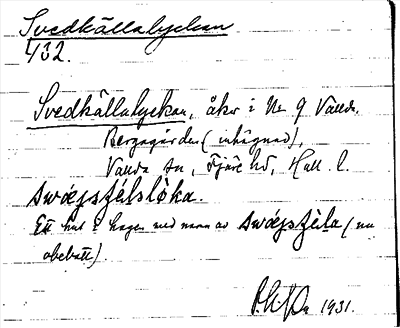 Svedkällalyckan
432.
Svedkällalyckan, åker i Nr 9 Vallda
Bergagården (inhägnad),
Vallda sn, Fjäre hd, Hall. l.
Ett hus i hagen med namn av (nu
obebott).
1931.